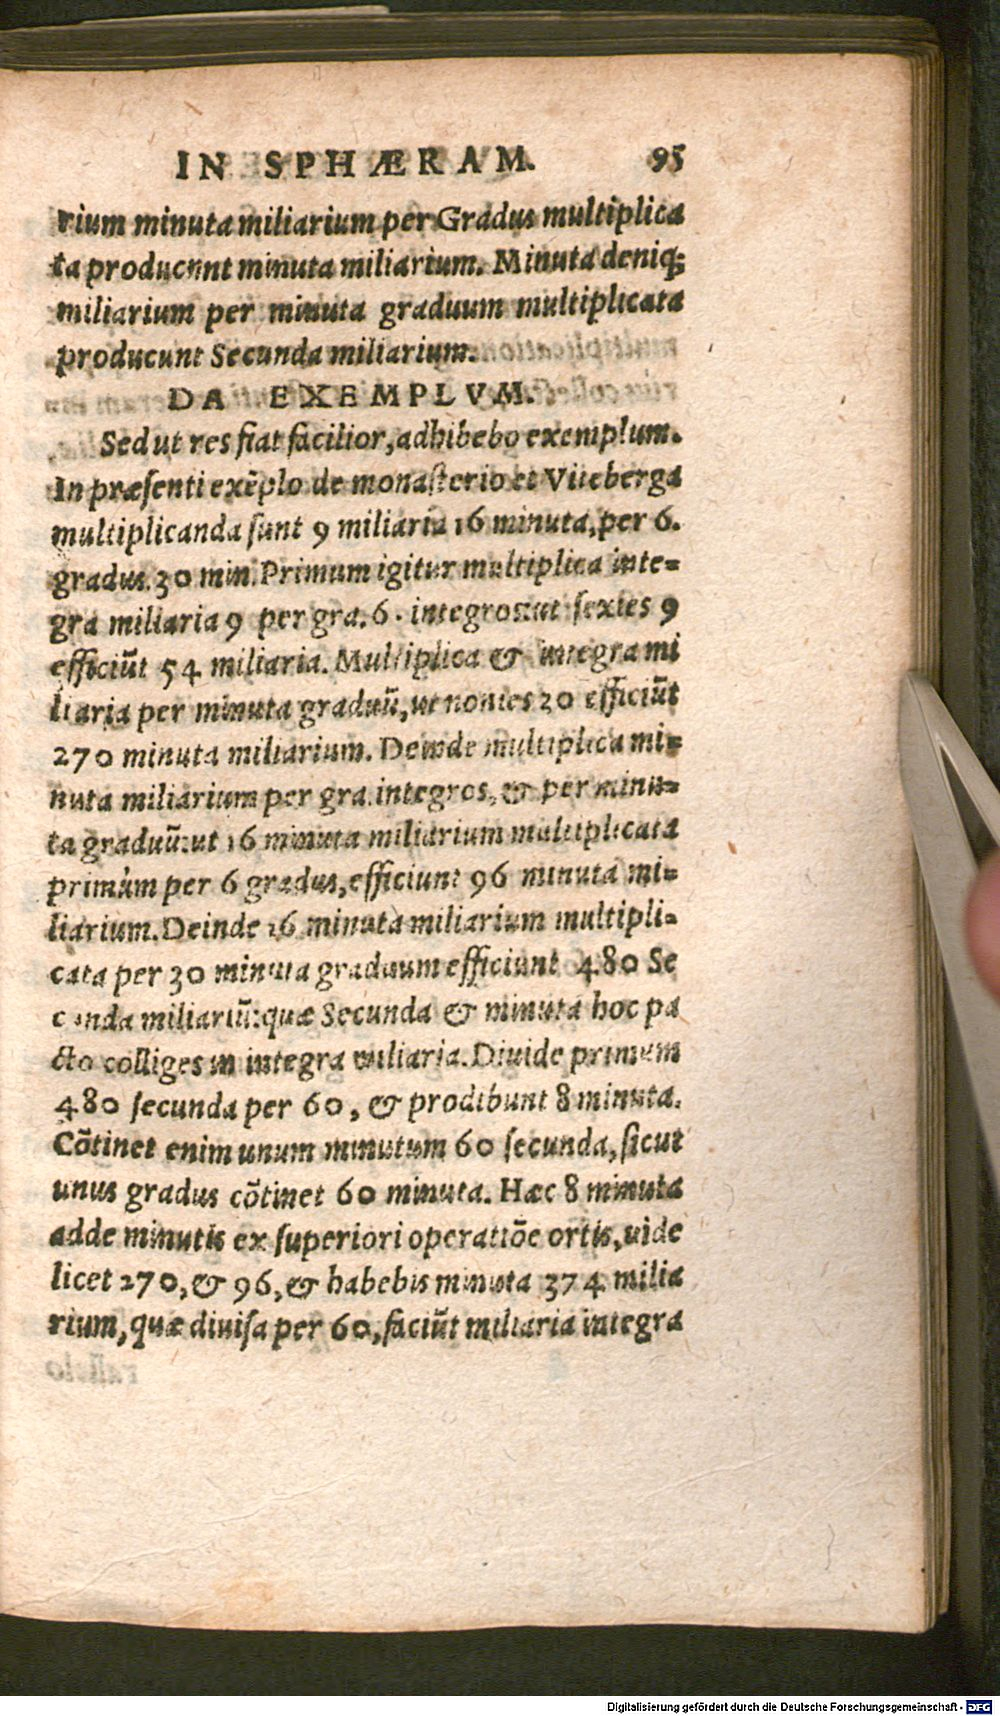 IN SPHÆRAM. 95
rium minuta miliarium per Gradus multiplica
ta producunt minuta miliarium. Minuta deniq;
miliarium per minuta graduum multiplicata
producunt Secunda miliarium.
DA EXEMPLVM.
Sed ut res fiat facilior, adhibebo exemplum.
In præſenti exẽplo de monaſterio et Viteberga
multiplicanda ſunt 9 miliaria 16 minuta, per 6.
gradus. 30 min. Primum igitur multiplica inte=
gra miliaria 9 per gra. 6. integros: ut ſexies 9
efficiũt 54 miliaria. Multiplica & integra mi
liaria per minuta graduũ, ut nonies 30 efficiũt
270 minuta miliarium. Deinde multiplica mi=
nuta miliarium per gra. integros, & per minu=
ta graduũ: ut 16 minuta miliarium multiplicata
primùm per 6 gradus, efficiunt 96 minuta mi=
liarium. Deinde 16 minuta miliarium multipli=
cata per 30 minuta graduum efficiunt 480 Se
cunda miliariũ: quæ Secunda & minuta hoc pa
cto colliges in integra miliaria. Diuide primum
480 ſecunda per 60, & prodibunt 8 minuta.
Cõtinet enim unum minutum 60 ſecunda, ſicut
unus gradus cõtinet 60 minuta. Hæc 8 minuta
adde minutis ex ſuperiori operatiõe ortis, uide
licet 270, & 96, & habebis minuta 374 milia
rium, quæ diuiſa per 60, faciũt miliaria integra
Digitalisierung gefördert durch die Deutsche Forschungsgemeinschaft - DFG